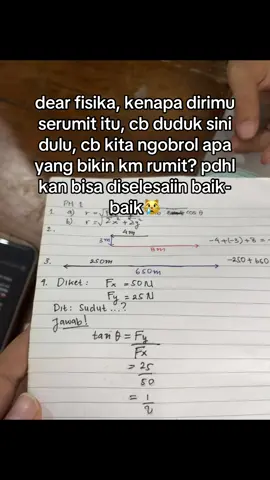 dear fisika, kenapa dirimu
serumit itu, cb duduk sini
dulu, cb kita ngobrol apa
yang bikin km rumit? pdhl
kan bisa diselesaiin baik-
baik😹
PH 1
1. a) r = √
b) r = √2x² + 2y²
2.
4m
3m
8m
-4+(-3)+8 =
3.
250m
650m
-250 + 650
4. Diket: Fx = 50 N
Fy = 25 N
Dit: Sudut ...?
Jawab!
tan θ = Fy
Fx
= 25
50
= 1
2